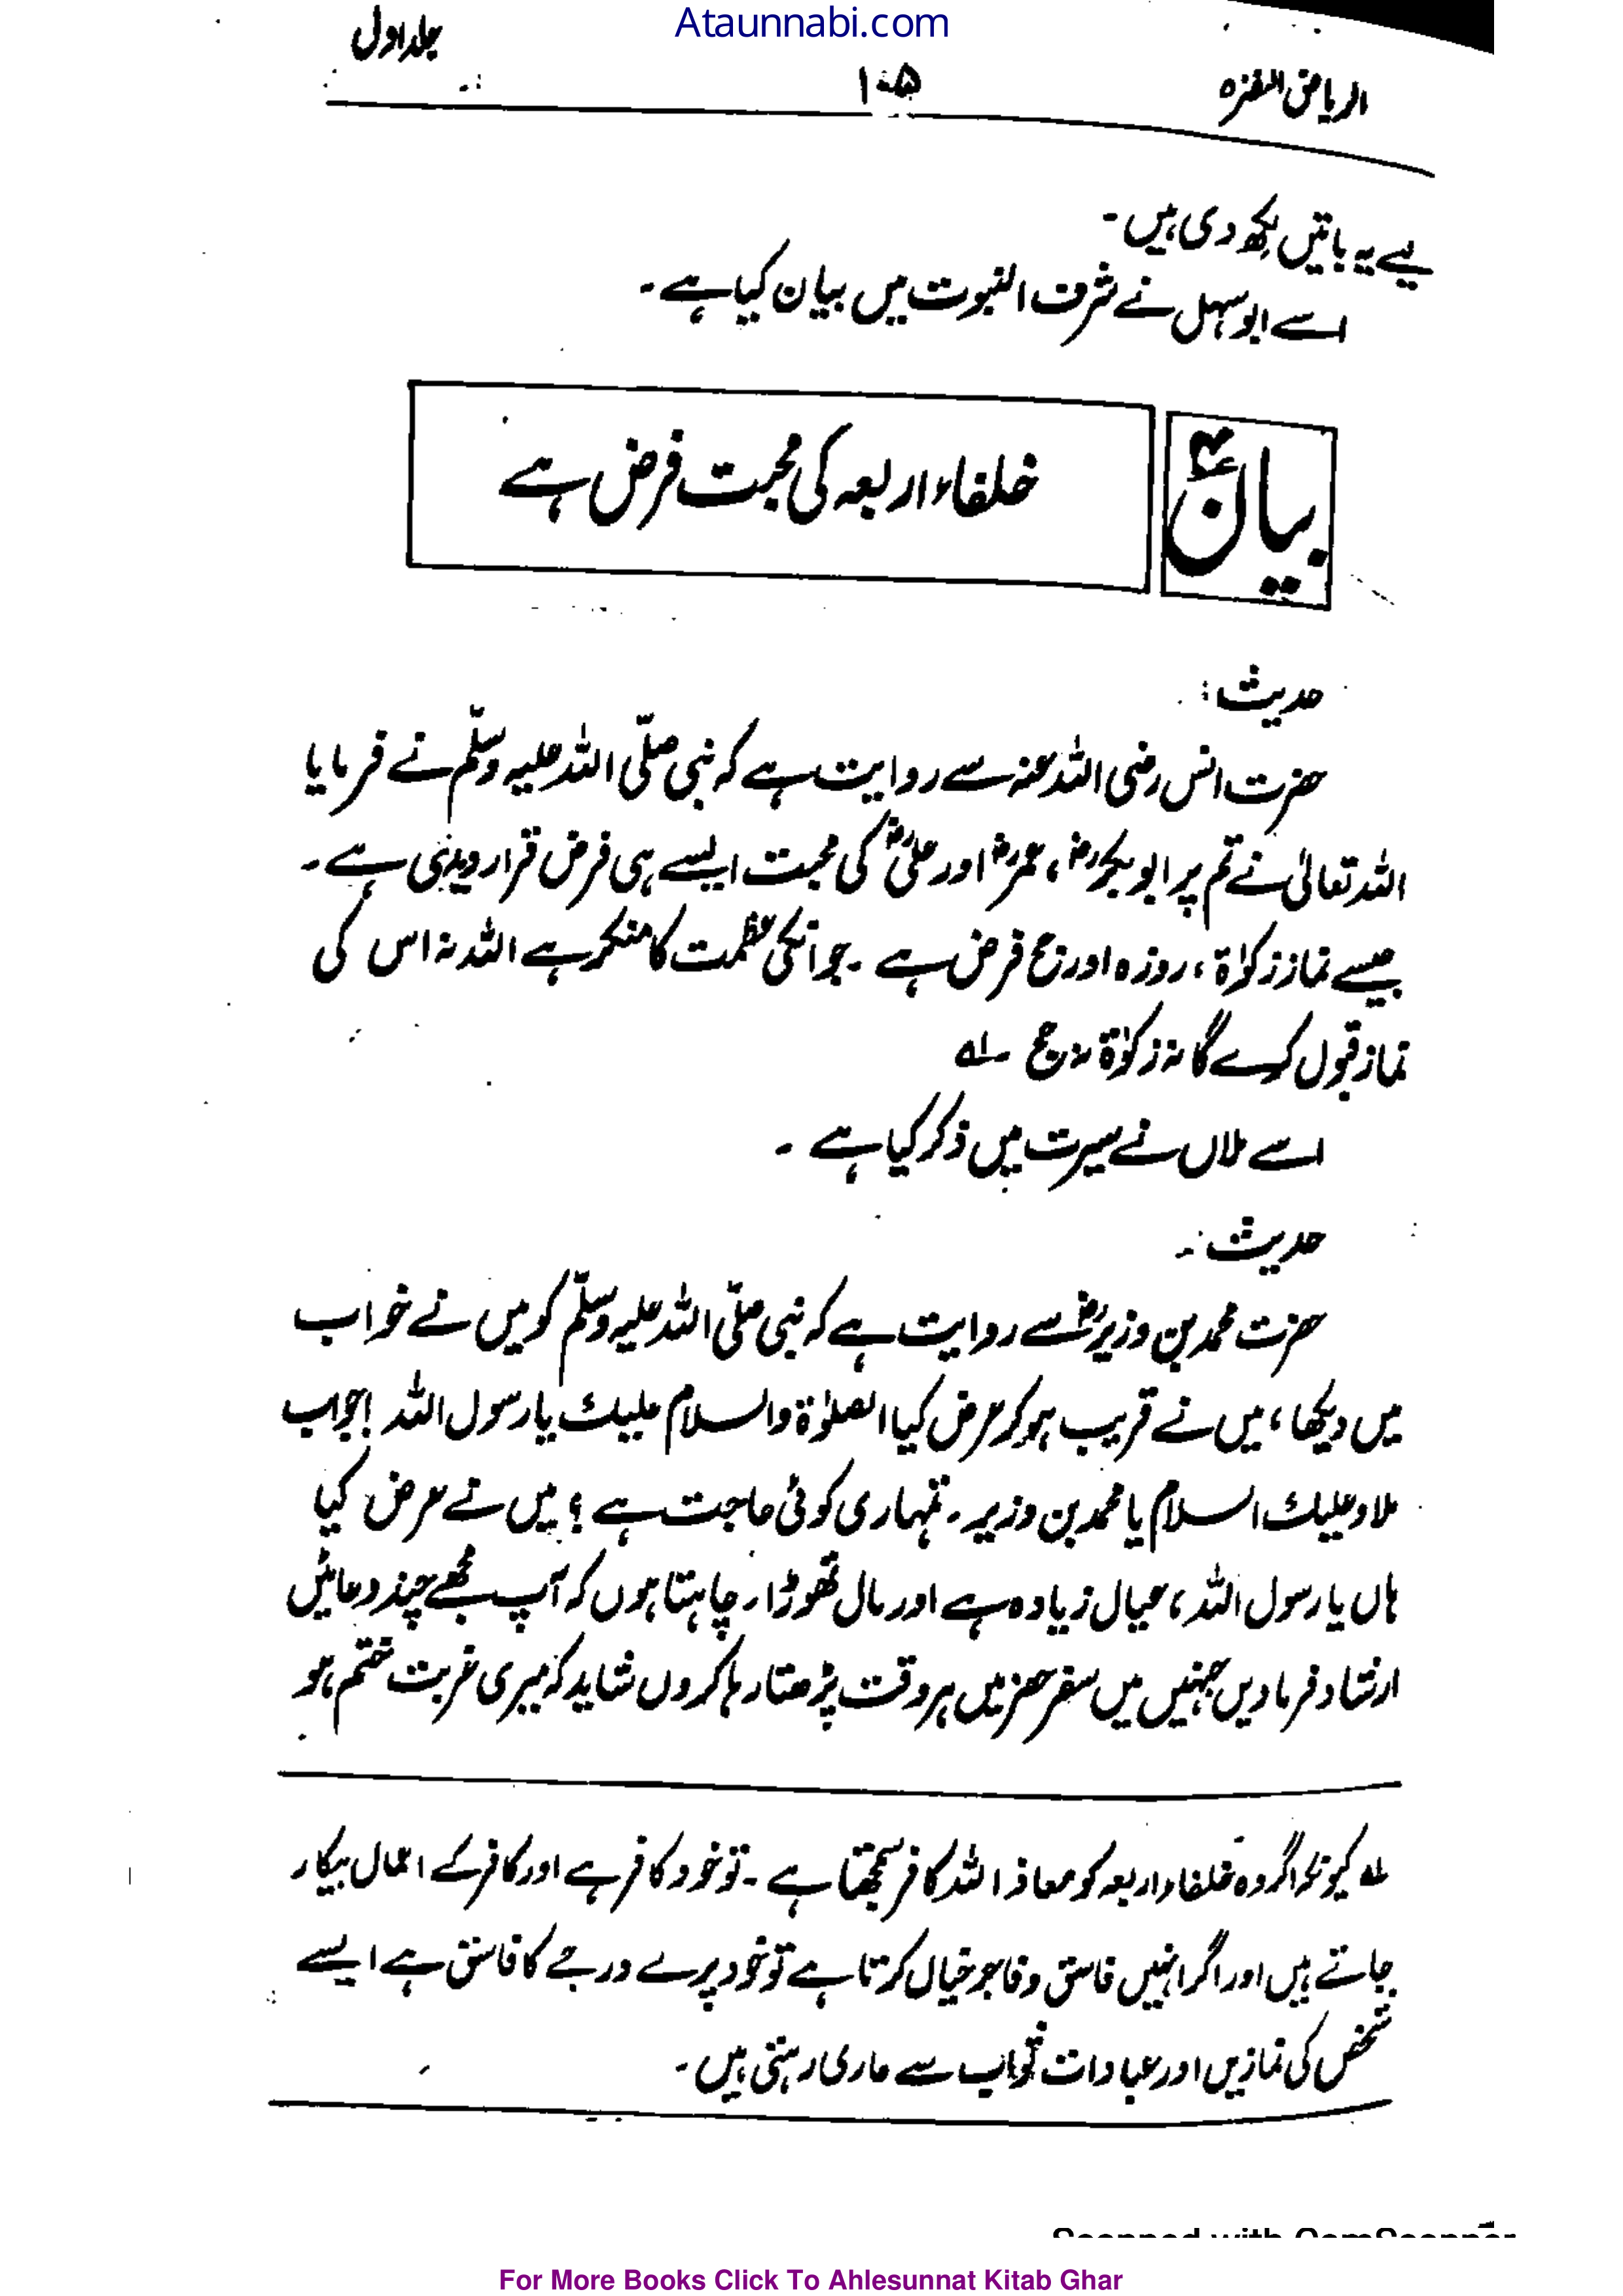 Ataunnabi.com
جلد اول
الریاض النضرہ
۱۰۵
لیے یہ باتیں لکھ دی ہیں۔
اسے ابو سہل نے شرف النبوت میں بیان کیا ہے۔
بیان
خلفاء اربعہ کی محبت فرض ہے
حدیث:
حضرت انس رضی اللہ عنہ سے روایت ہے کہ نبی صلّی اللہ علیہ وسلّم نے فرمایا
اللہ تعالیٰ نے تم پر ابوبکرؓ، عمرؓ اور علیؓ کی محبت ایسے ہی فرض قرار دیدی ہے۔
جیسے نماز زکوٰۃ، روزہ اور حج فرض ہے۔ جو انکی عظمت کا منکر ہے اللہ نہ اس کی
نماز قبول کرے گا نہ زکوٰۃ نہ حج ۔ لہ
اسے ملاں نے سیرت میں ذکر کیا ہے ۔
حدیث:۔
حضرت محمد بن وزیرؓ سے روایت ہے کہ نبی صلّی اللہ علیہ وسلّم کو میں نے خواب
میں دیکھا، میں نے قریب ہو کر عرض کیا الصلوٰۃ والسلام علیک یا رسول اللہ! جواب
ملا وعلیک السلام یا محمد بن وزیر۔ تمہاری کوئی حاجت ہے؟ میں نے عرض کیا
ہاں یا رسول اللہ، عیال زیادہ ہے اور مال تھوڑا۔ چاہتا ہوں کہ آپ مجھے چند دعائیں
ارشاد فرما دیں جنہیں میں سفر حضر میں ہر وقت پڑھتا رہا کروں شاید کہ میری غربت ختم ہو
لہ کیونکہ اگر وہ خلفاء اربعہ کو معاذ اللہ کافر سمجھتا ہے۔ تو خود کافر ہے اور کافر کے اعمال بیکار
جاتے ہیں اور اگر انہیں فاسق و فاجر خیال کرتا ہے تو خود پرے درجے کا فاسق ہے ایسے
شخص کی نمازیں اور عبادات ثواب سے عاری رہتی ہیں۔
Scanned with CamScanner
For More Books Click To Ahlesunnat Kitab Ghar